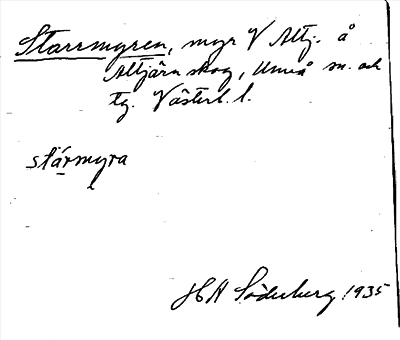 Starrmyren, myr V Altj. å
Altjärn skog, Umeå sn. och
tg. Västerb. l.
stármyra
HA Söderberg 1935